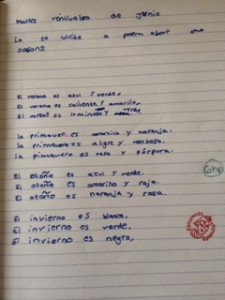 Martes veintinueve de junio
Lo to write a poem about one
season
El verano es azul y verde.
El verano es caliente y amarillo.
El verano es luminoso y verde
la primavera es amarilla y naranja.
la primavera es algre y
la primavera es rosa y púrpura.
El otoño es azul y verde.
El otoño es amarillo y rojo.
El otoño es naranja y rosa.
El invierno es blanco.
El invierno es verde.
El invierno es negro.